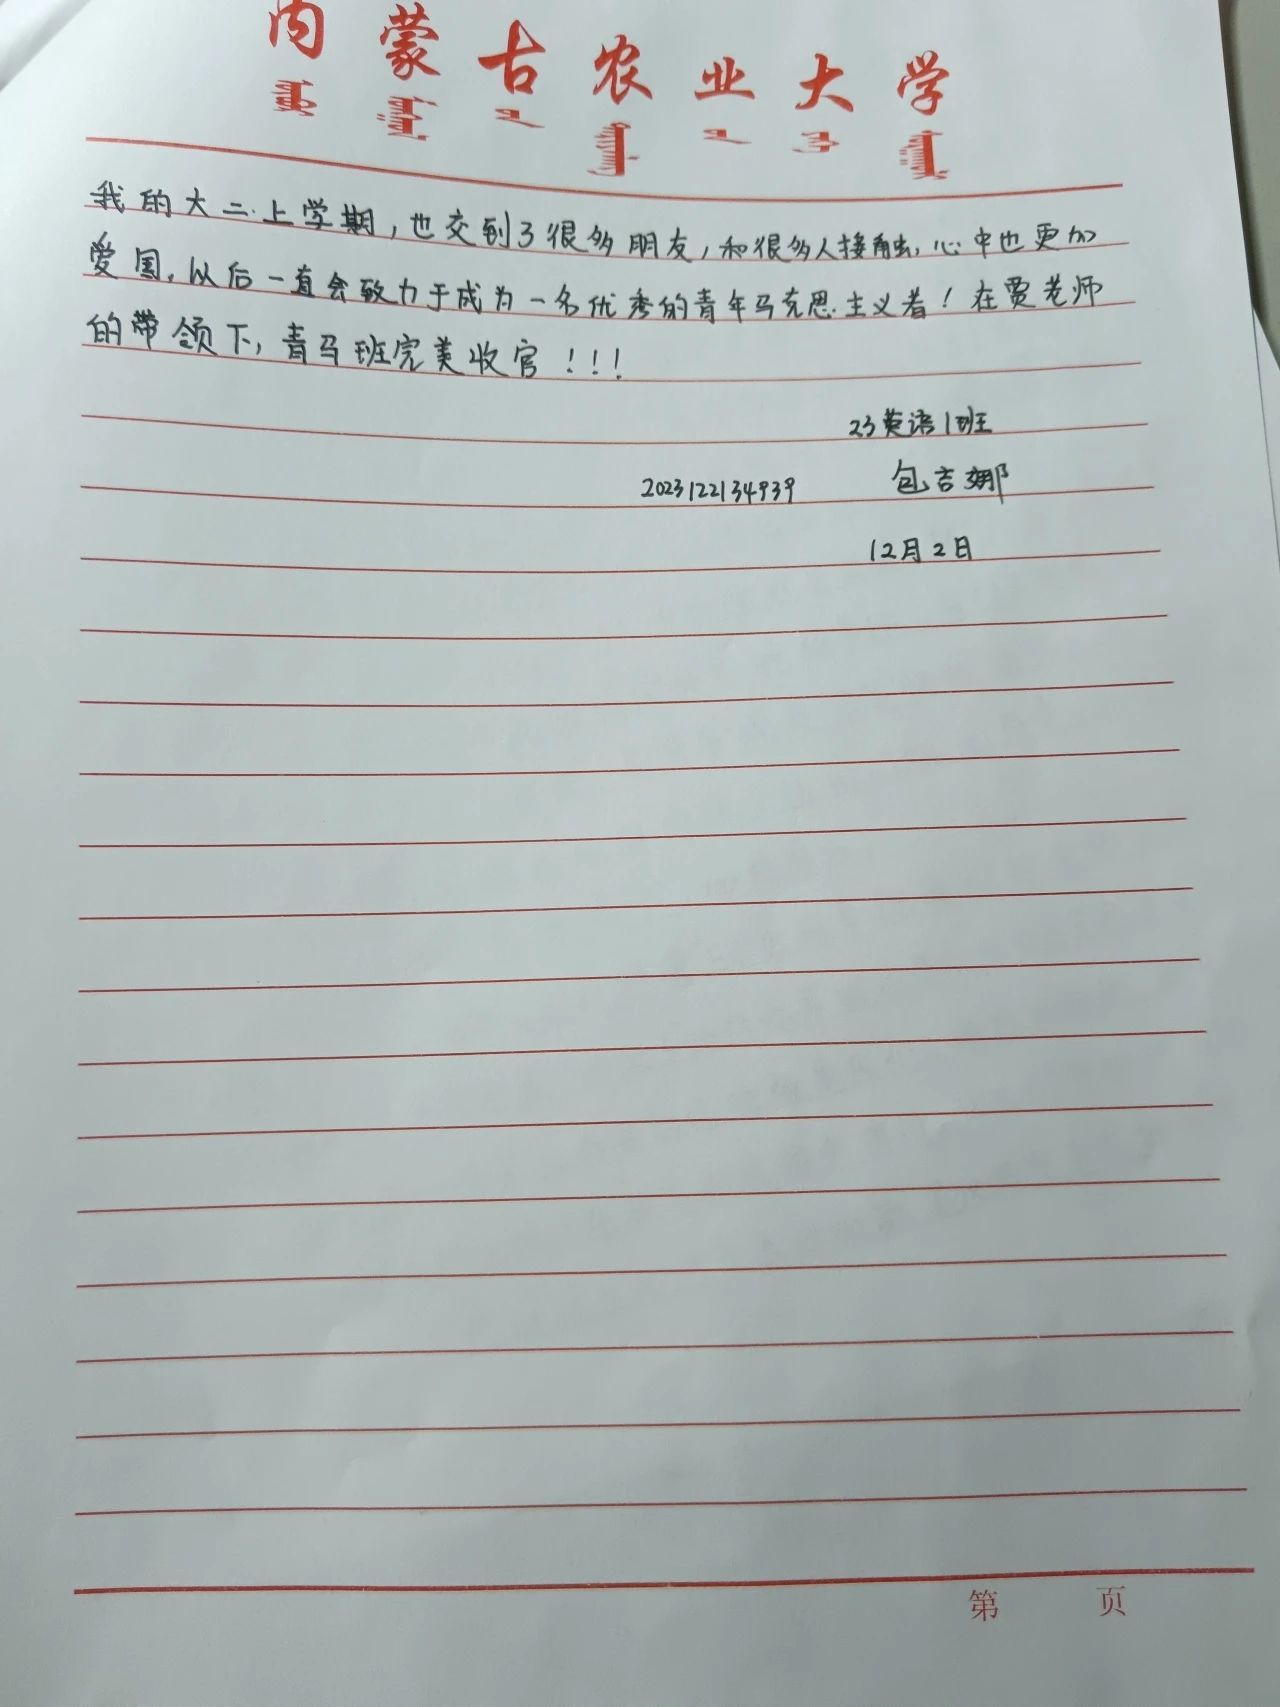 内蒙古农业大学
我的大二上学期,也交到了很多朋友,和很多人接触,心中也更加
爱国,以后一直会致力于成为一名优秀的青年马克思主义者!在贾老师
的带领下,青马班完美收官!!!
23英语1班
2023122134939 包吉娜
12月2日
第 页